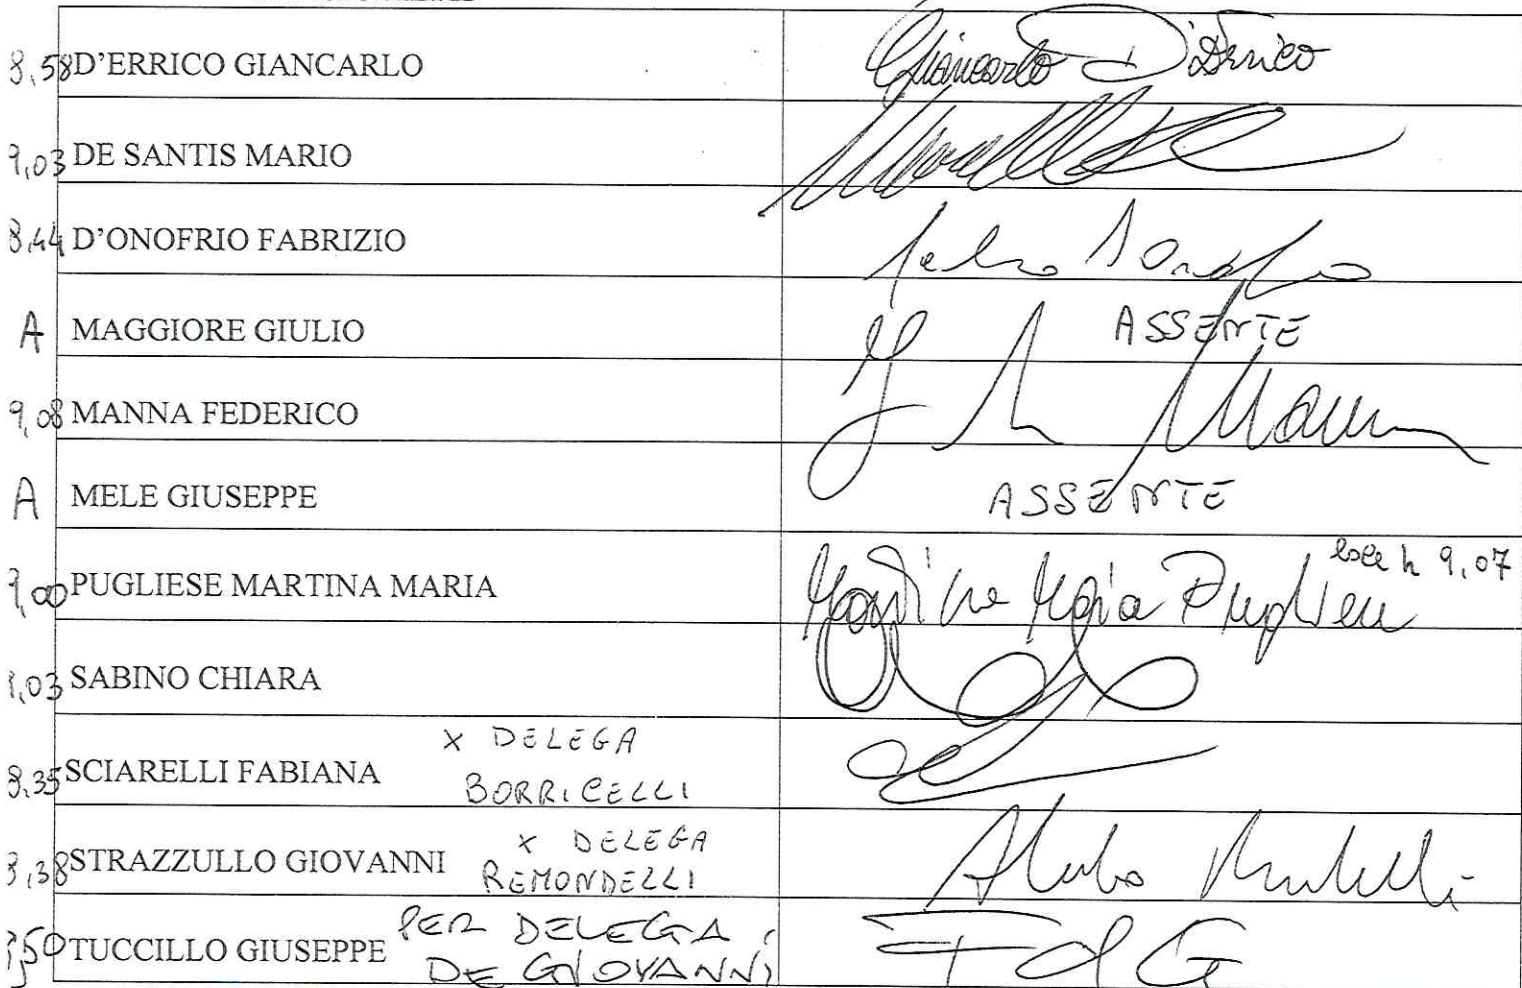 8,58 D'ERRICO GIANCARLO Giancarlo D'Errico
9,03 DE SANTIS MARIO
8,44 D'ONOFRIO FABRIZIO
A MAGGIORE GIULIO ASSENTE
9,08 MANNA FEDERICO
A MELE GIUSEPPE ASSENTE
9,00 PUGLIESE MARTINA MARIA Martina Maria Pugliese 9,07
9,03 SABINO CHIARA
X DELEGA
8,35 SCIARELLI FABIANA BORRICELLI
X DELEGA
8,38 STRAZZULLO GIOVANNI REMONDELLI
PER DELEGA
TUCCILLO GIUSEPPE DE GIOVANNI FdG